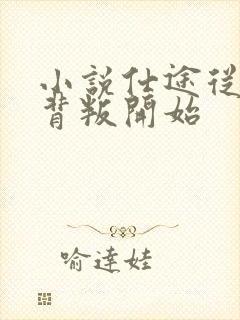 小說仕途從
背叛開始
喻達娃